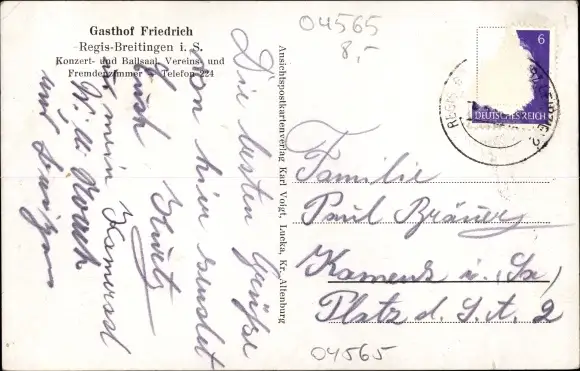 Gasthof Friedrich
Regis-Breitingen i. S.
Konzert- und Ballsaal, Vereins- und
Fremdenzimmer — Telefon 224
04565
8,-
6
DEUTSCHES REICH
REGIS
Die besten Grüße
von hier sendet
Euch Kurt
mein Kamerad
und
Ansichtspostkartenverlag Karl Voigt, Lucka, Kr. Altenburg
Familie
Paul Bräuer
Kamenz i. (Sa)
Platz d. S.A. 2
04565